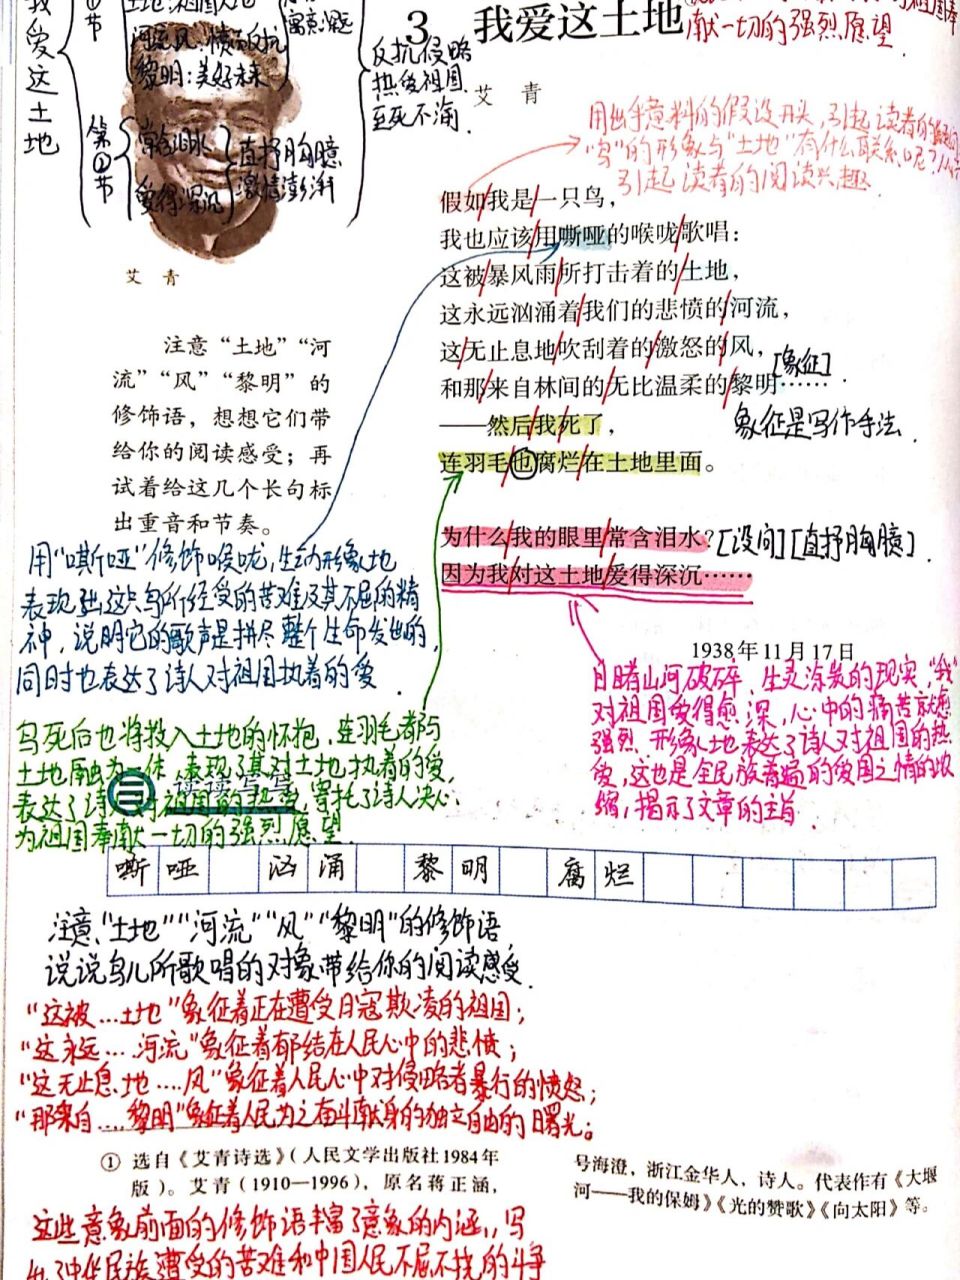 我爱这土地
节
河流、风:悲愤反抗
黎明:美好未来
寓意深远
反抗侵略
热爱祖国
至死不渝
第②节
常含泪水
爱得深沉
直抒胸臆
激情澎湃
3 我爱这土地
献一切的强烈愿望
艾 青
用出乎意料的假设开头,引起读者的
“鸟”的形象与“土地”有什么联系呢?
引起读者的阅读兴趣
假如我是一只鸟,
我也应该用嘶哑的喉咙歌唱:
这被暴风雨所打击着的土地,
这永远汹涌着我们的悲愤的河流,
这无止息地吹刮着的激怒的风,
和那来自林间的无比温柔的黎明……
[象征]
象征是写作手法.
——然后我死了,
连羽毛也腐烂在土地里面。
为什么我的眼里常含泪水?
[设问][直抒胸臆].
因为我对这土地爱得深沉……
1938年11月17日
艾 青
注意“土地”“河
流”“风”“黎明”的
修饰语,想想它们带
给你的阅读感受;再
试着给这几个长句标
出重音和节奏。
用“嘶哑”修饰喉咙,生动形象地
表现出这只鸟所经受的苦难及其不屈的精
神,说明它的歌声是拼尽整个生命发出的,
同时也表达了诗人对祖国执着的爱.
目睹山河破碎、生灵涂炭的现实,“我”
对祖国爱得愈深,心中的痛苦就愈
强烈.形象地表达了诗人对祖国的热
爱,这也是全民族普遍的爱国之情的浓
缩,揭示了文章的主旨.
鸟死后也将投入土地的怀抱,连羽毛都与
土地融为一体,表现了其对土地执着的爱,
表达了诗人对祖国的热爱,寄托了诗人决心
为祖国奉献一切的强烈愿望.
三 读读写写
嘶哑 汹涌 黎明 腐烂
注意“土地”“河流”“风”“黎明”的修饰语,
说说鸟儿所歌唱的对象带给你的阅读感受.
“这被…土地”象征着正在遭受日寇欺凌的祖国;
“这永远…河流”象征着郁结在人民心中的悲愤;
“这无止息地....风”象征着人民心中对侵略者暴行的愤怒;
“那来自....黎明”象征着人民为之奋斗献身的独立自由的曙光。
① 选自《艾青诗选》(人民文学出版社1984年
版)。艾青(1910—1996),原名蒋正涵,
号海澄,浙江金华人,诗人。代表作有《大堰
河——我的保姆》《光的赞歌》《向太阳》等。
这些意象前面的修饰语丰富了意象的内涵,写
出了中华民族遭受的苦难和中国人民不屈不挠的斗争